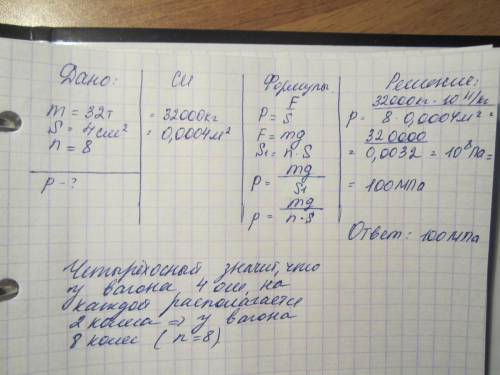 Дано:
m = 32т
S = 4 см²
n = 8
p - ?
СИ
= 32000кг
= 0,0004м²
Формулы:
p = F/S
F = mg
S₁ = n·S
p = mg/S₁
p = mg/n·S
Решение:
p = 32000кг·10 Н/кг / 8·0,0004м² =
= 320000/0,0032 = 10⁸Па =
= 100МПа
Ответ: 100МПа
Четырёхосный значит, что
у вагона 4 оси, на
каждой располагается
2 колеса => у вагона
8 колес (n=8)